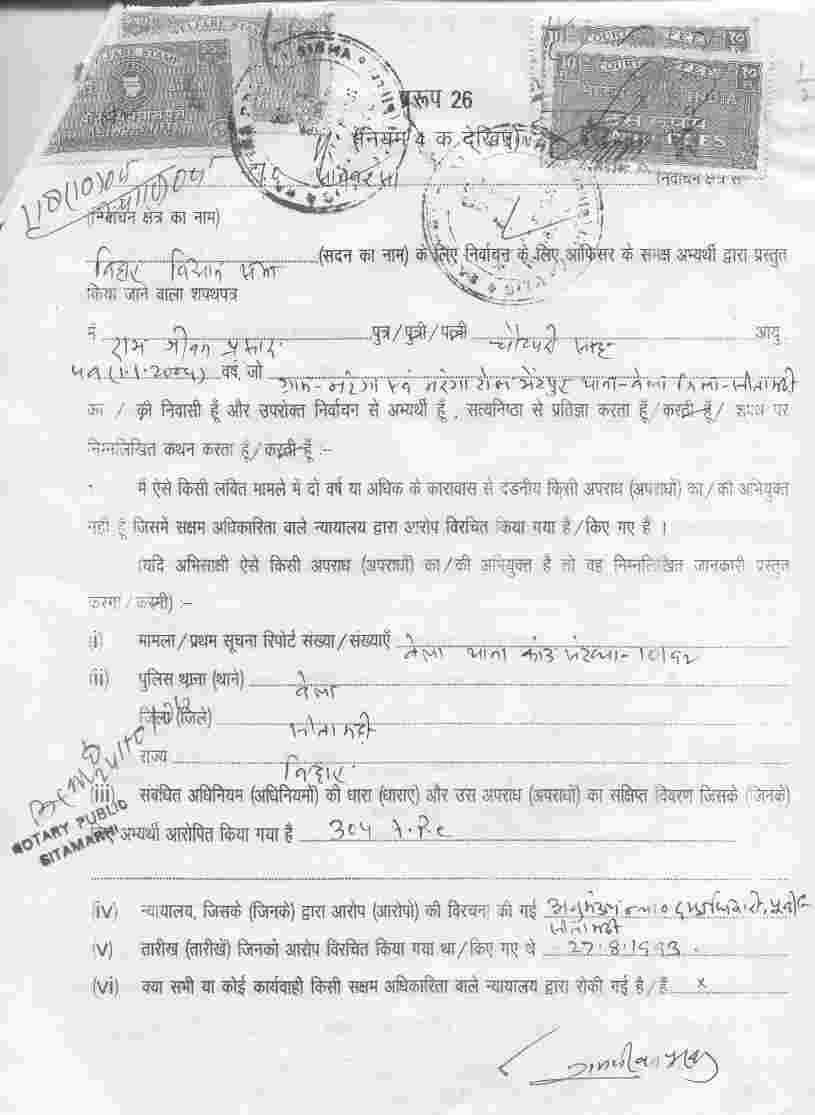 प्ररूप 26
(नियम 4 क देखिए)
निर्वाचन क्षेत्र से
(निर्वाचन क्षेत्र का नाम)
बिहार विधान सभा (सदन का नाम) के लिए निर्वाचन के लिए आफिसर के समक्ष अभ्यर्थी द्वारा प्रस्तुत
किया जाने वाला शपथपत्र
मैं राम जीवन प्रसाद पुत्र/पुत्री/पत्नी आयु
(1.1.2005) वर्ष, जो ग्राम-नरंगा एवं नरंगा टोल थाना-बेला जिला-सीतामढ़ी
का / की निवासी हूँ और उपरोक्त निर्वाचन से अभ्यर्थी हूँ , सत्यनिष्ठा से प्रतिज्ञा करता हूँ/करती हूँ/ शपथ पर
निम्नलिखित कथन करता हूँ/करती हूँ :-
मैं ऐसे किसी लंबित मामले में दो वर्ष या अधिक के कारावास से दंडनीय किसी अपराध (अपराधों) का/की अभियुक्त
नहीं हूँ जिसमें सक्षम अधिकारिता वाले न्यायालय द्वारा आरोप विरचित किया गया है/किए गए है ।
(यदि अभिसाक्षी ऐसे किसी अपराध (अपराधों) का/की अभियुक्त है तो वह निम्नलिखित जानकारी प्रस्तुत
करेगा/करेगी) :-
(i) मामला/प्रथम सूचना रिपोर्ट संख्या/संख्याएँ बेला थाना कांड संख्या-10/92
(ii) पुलिस थाना (थाने) बेला
जिला (जिले) सीतामढ़ी
राज्य बिहार
(iii) संबंधित अधिनियम (अधिनियमों) की धारा (धाराएं) और उस अपराध (अपराधों) का संक्षिप्त विवरण जिसके (जिनके)
लिए अभ्यर्थी आरोपित किया गया है 304 I.P.C
NOTARY PUBLIC
SITAMARHI
(iv) न्यायालय, जिसके (जिनके) द्वारा आरोप (आरोपों) की विरचना की गई
सीतामढ़ी
(v) तारीख (तारीखें) जिनको आरोप विरचित किया गया था/किए गए थे 27.8.1993
(vi) क्या सभी या कोई कार्यवाही किसी सक्षम अधिकारिता वाले न्यायालय द्वारा रोकी गई है/हैं x